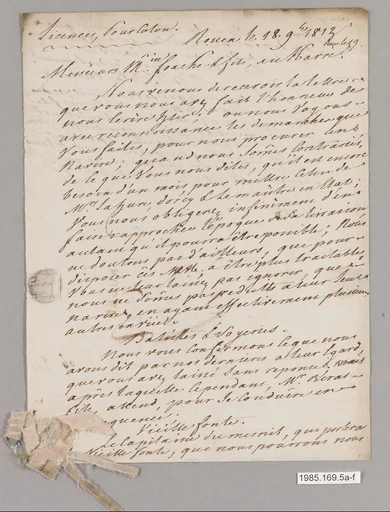 Licences, Pour Coton.
Rouen le 18 9bre 1813
Messieurs Mtin foache & fils, au havre.
Nous venons de recevoir la lettre
que vous nous avez fait l'honneur de
nous écrire hier, ou nous voyons
avec reconnaissance les demarches que
Vous faites, pour nous procurer un
Navire; quand nous sommes contrariés
de ce que Vous nous dites, qu'il ont encore
besoin d'un mois pour mettre celui de
en Etat;
Vous nous obligerez infiniment d'en
faire rapprocher l'époque de la livraison
autant qu'il pourra être possible; Nous
ne doutons pas d'ailleurs, que pour
disposer ces à être plus traitables
Vous ne leur laissiez pas ignorer, que
nous ne sommes pas reduits a leur seul
navire, en ayant effectivement plusieurs
autres en vue.
Batilles & Voyeries.
Nous vous confirmons ce que nous
avons dit par nos dernières a leur egard,
que vous avez laissé sans reponse,
après laquelle cependant, Mr.
fils, attend, pour se conduire en
quence.
Vieille fonte.
Le capitaine du qui portera
Vieille fonte, que nous pourrons nous
1985.169.5a-f